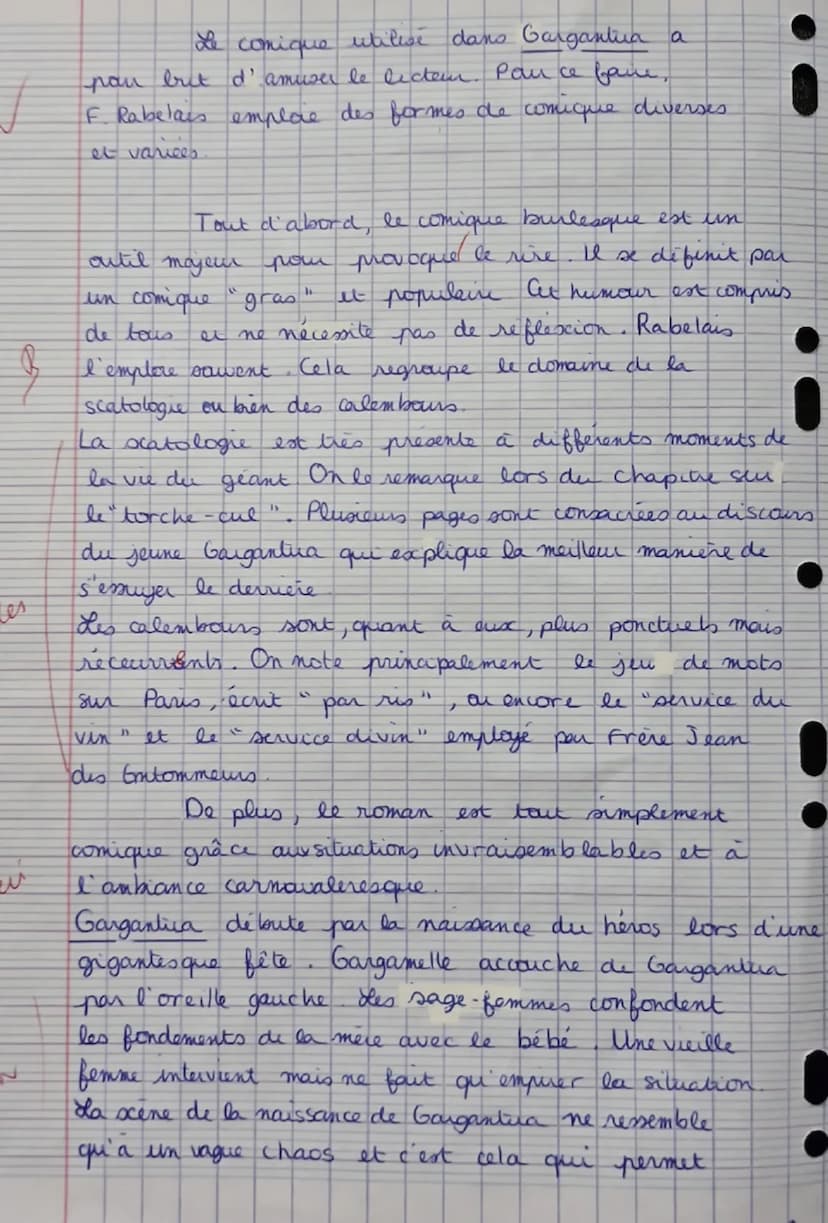 Le comique utilisé dans Gargantua a
pour but d'amuser le lecteur. Pour ce faire,
F. Rabelais emploie des formes de comique diverses
et variées.
Tout d'abord, le comique burlesque est un
outil majeur pour provoquer le rire. Il se définit par
un comique "gras" et populaire. Cet humour est compris
de tous et ne nécessite pas de réflexion. Rabelais
l'emploie souvent. Cela regroupe le domaine de la
scatologie ou bien des calembours.
La scatologie est très présente à différents moments de
la vie du géant. On le remarque lors du chapitre sur
le "torche-cul". Plusieurs pages sont consacrées au discours
du jeune Gargantua qui explique la meilleur manière de
s'essuyer le derrière.
Les calembours sont, quant à eux, plus ponctuels mais
récurrents. On note principalement le jeu de mots
sur Paris, écrit "par ris", ou encore le "service du
vin" et le "service divin" employé par Frère Jean
des Entommeurs.
De plus, le roman est tout simplement
comique grâce aux situations invraisemblables et à
l'ambiance carnavaleresque.
Gargantua débute par la naissance du héros lors d'une
gigantesque fête. Gargamelle accouche de Gargantua
par l'oreille gauche. Les sage-femmes confondent
les fondements de la mère avec le bébé. Une vieille
femme intervient mais ne fait qu'empirer la situation.
La scène de la naissance de Gargantua ne ressemble
qu'à un vague chaos et c'est cela qui permet